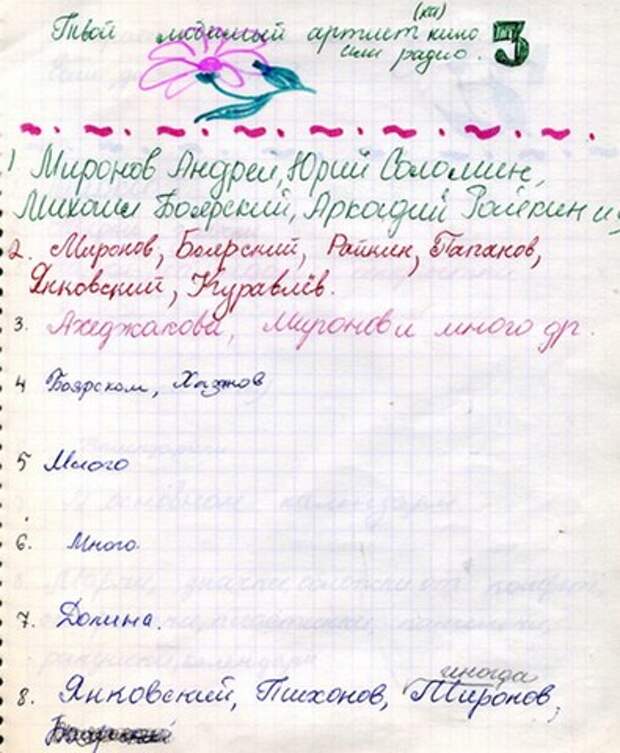 Твой любимый артист (ка) кино
или радио. 3
1 Миронов Андрей, Юрий Соломин,
Михаил Боярский, Аркадий Райкин и
2. Миронов, Боярский, Райкин, Папанов,
Янковский, Куравлёв.
3. Ахеджакова, Миронов и много др.
4 Боярский, Хазанов
5 Много
6. Много.
7. Долина.
иногда
8. Янковский, Тихонов, Миронов,